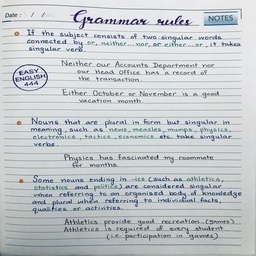 Date: / /
Grammar rules
NOTES
If the subject consists of two singular words
connected by or, neither...nor, or either...or, it takes
singular verb.
EASY
ENGLISH
444
Neither our Accounts Department nor
our Head Office has a record of
the transaction.
Either October or November is a good
vacation month.
Nouns that are plural in form but singular in
meaning, such as news, measles, mumps, physics,
electronics, tactics, economics etc. take singular
verbs.
Physics has fascinated my roommate
for months.
Some nouns ending in -ics (such as athletics,
statistics and politics) are considered singular
when referring to an organised body of knowledge
and plural when referring to individual facts,
qualities or activities.
Athletics provide good recreation. (games)
Athletics is required of every student
(i.e. participation in games)